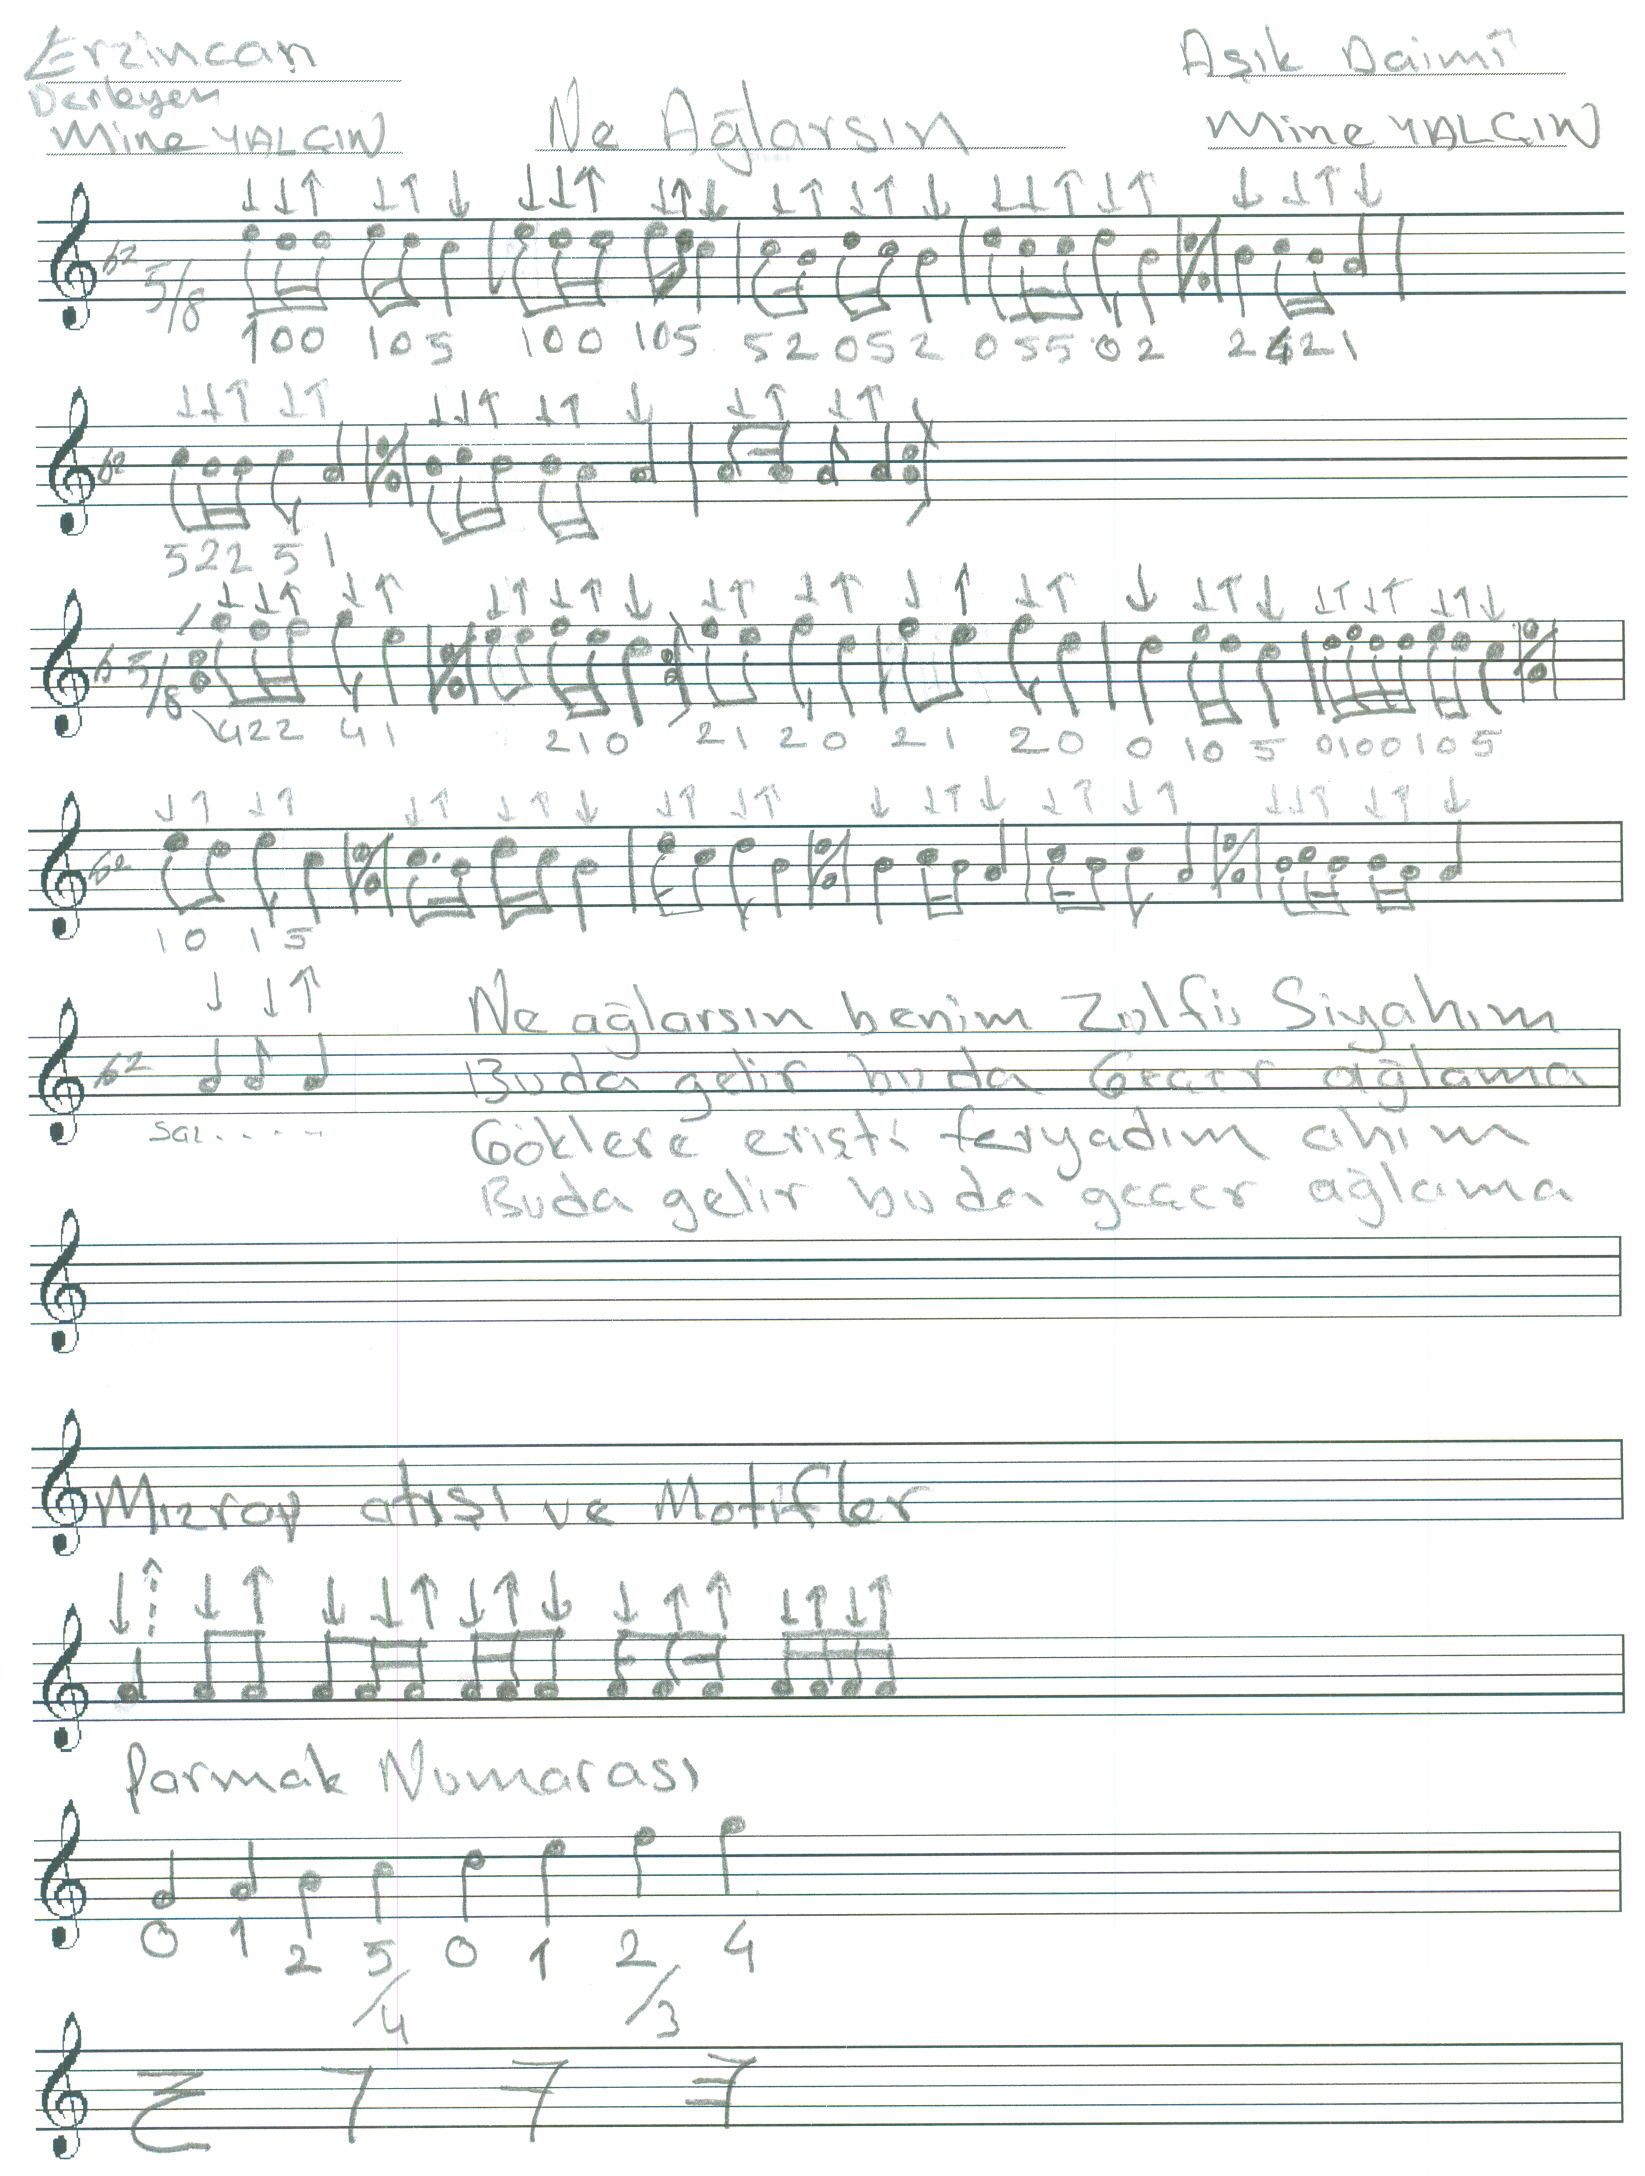 Erzincan
Aşık Daimî
Derleyen
Mine YALÇIN
Ne Ağlarsın
Mine YALÇIN
b2 5/8
100 105 100 105 52052 05502 2421
b2
522 51
b 5/8
422 41 210 21 20 21 20 0 10 5 0100105
b2
10 15
b2
Saz.....
Ne ağlarsın benim Zülfü Siyahım
Buda gelir buda Geçer ağlama
Göklere erişti feryadım ahım
Buda gelir buda geçer ağlama
Mızrap atışı ve Motifler
Parmak Numarası
0 1 2 5/4 0 1 2/3 4